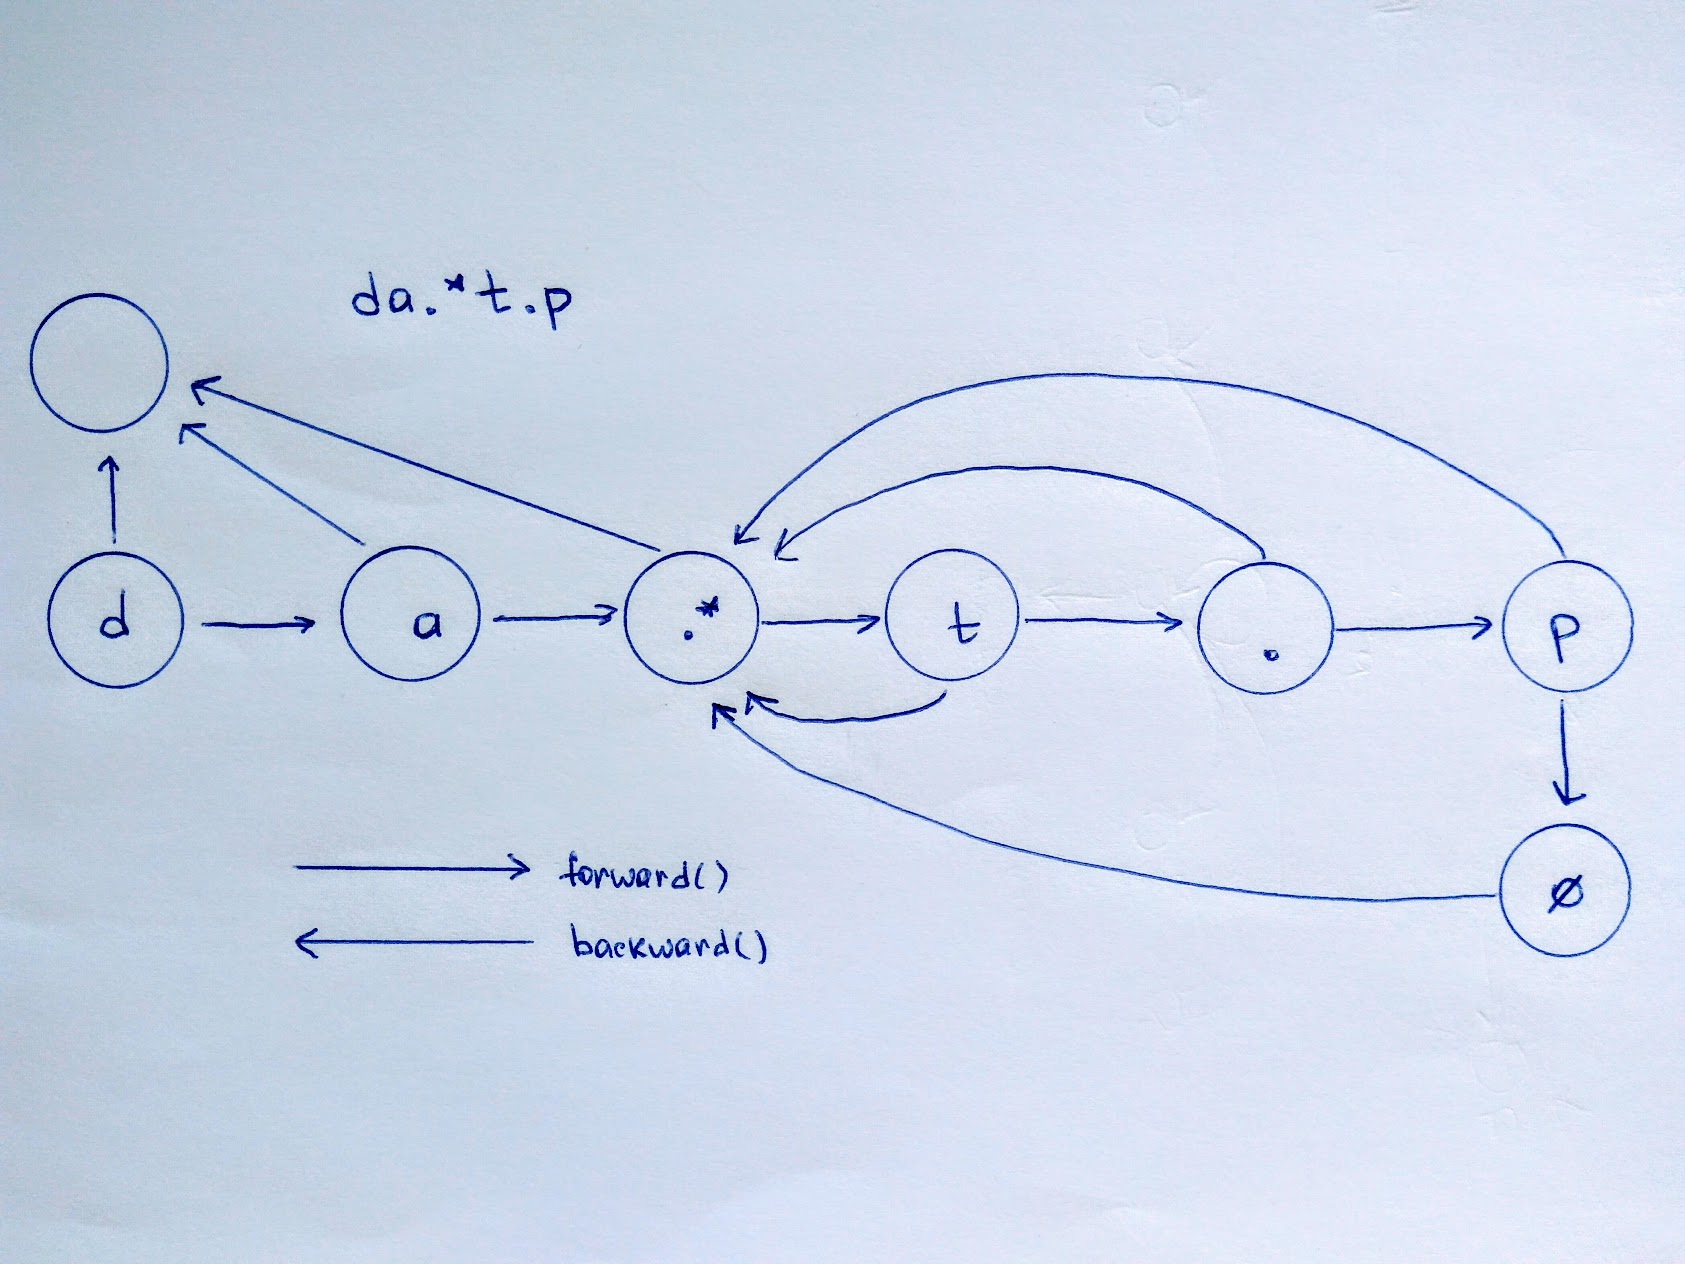 da.*t.p
d a .* t . p
ø
forward()
backward()